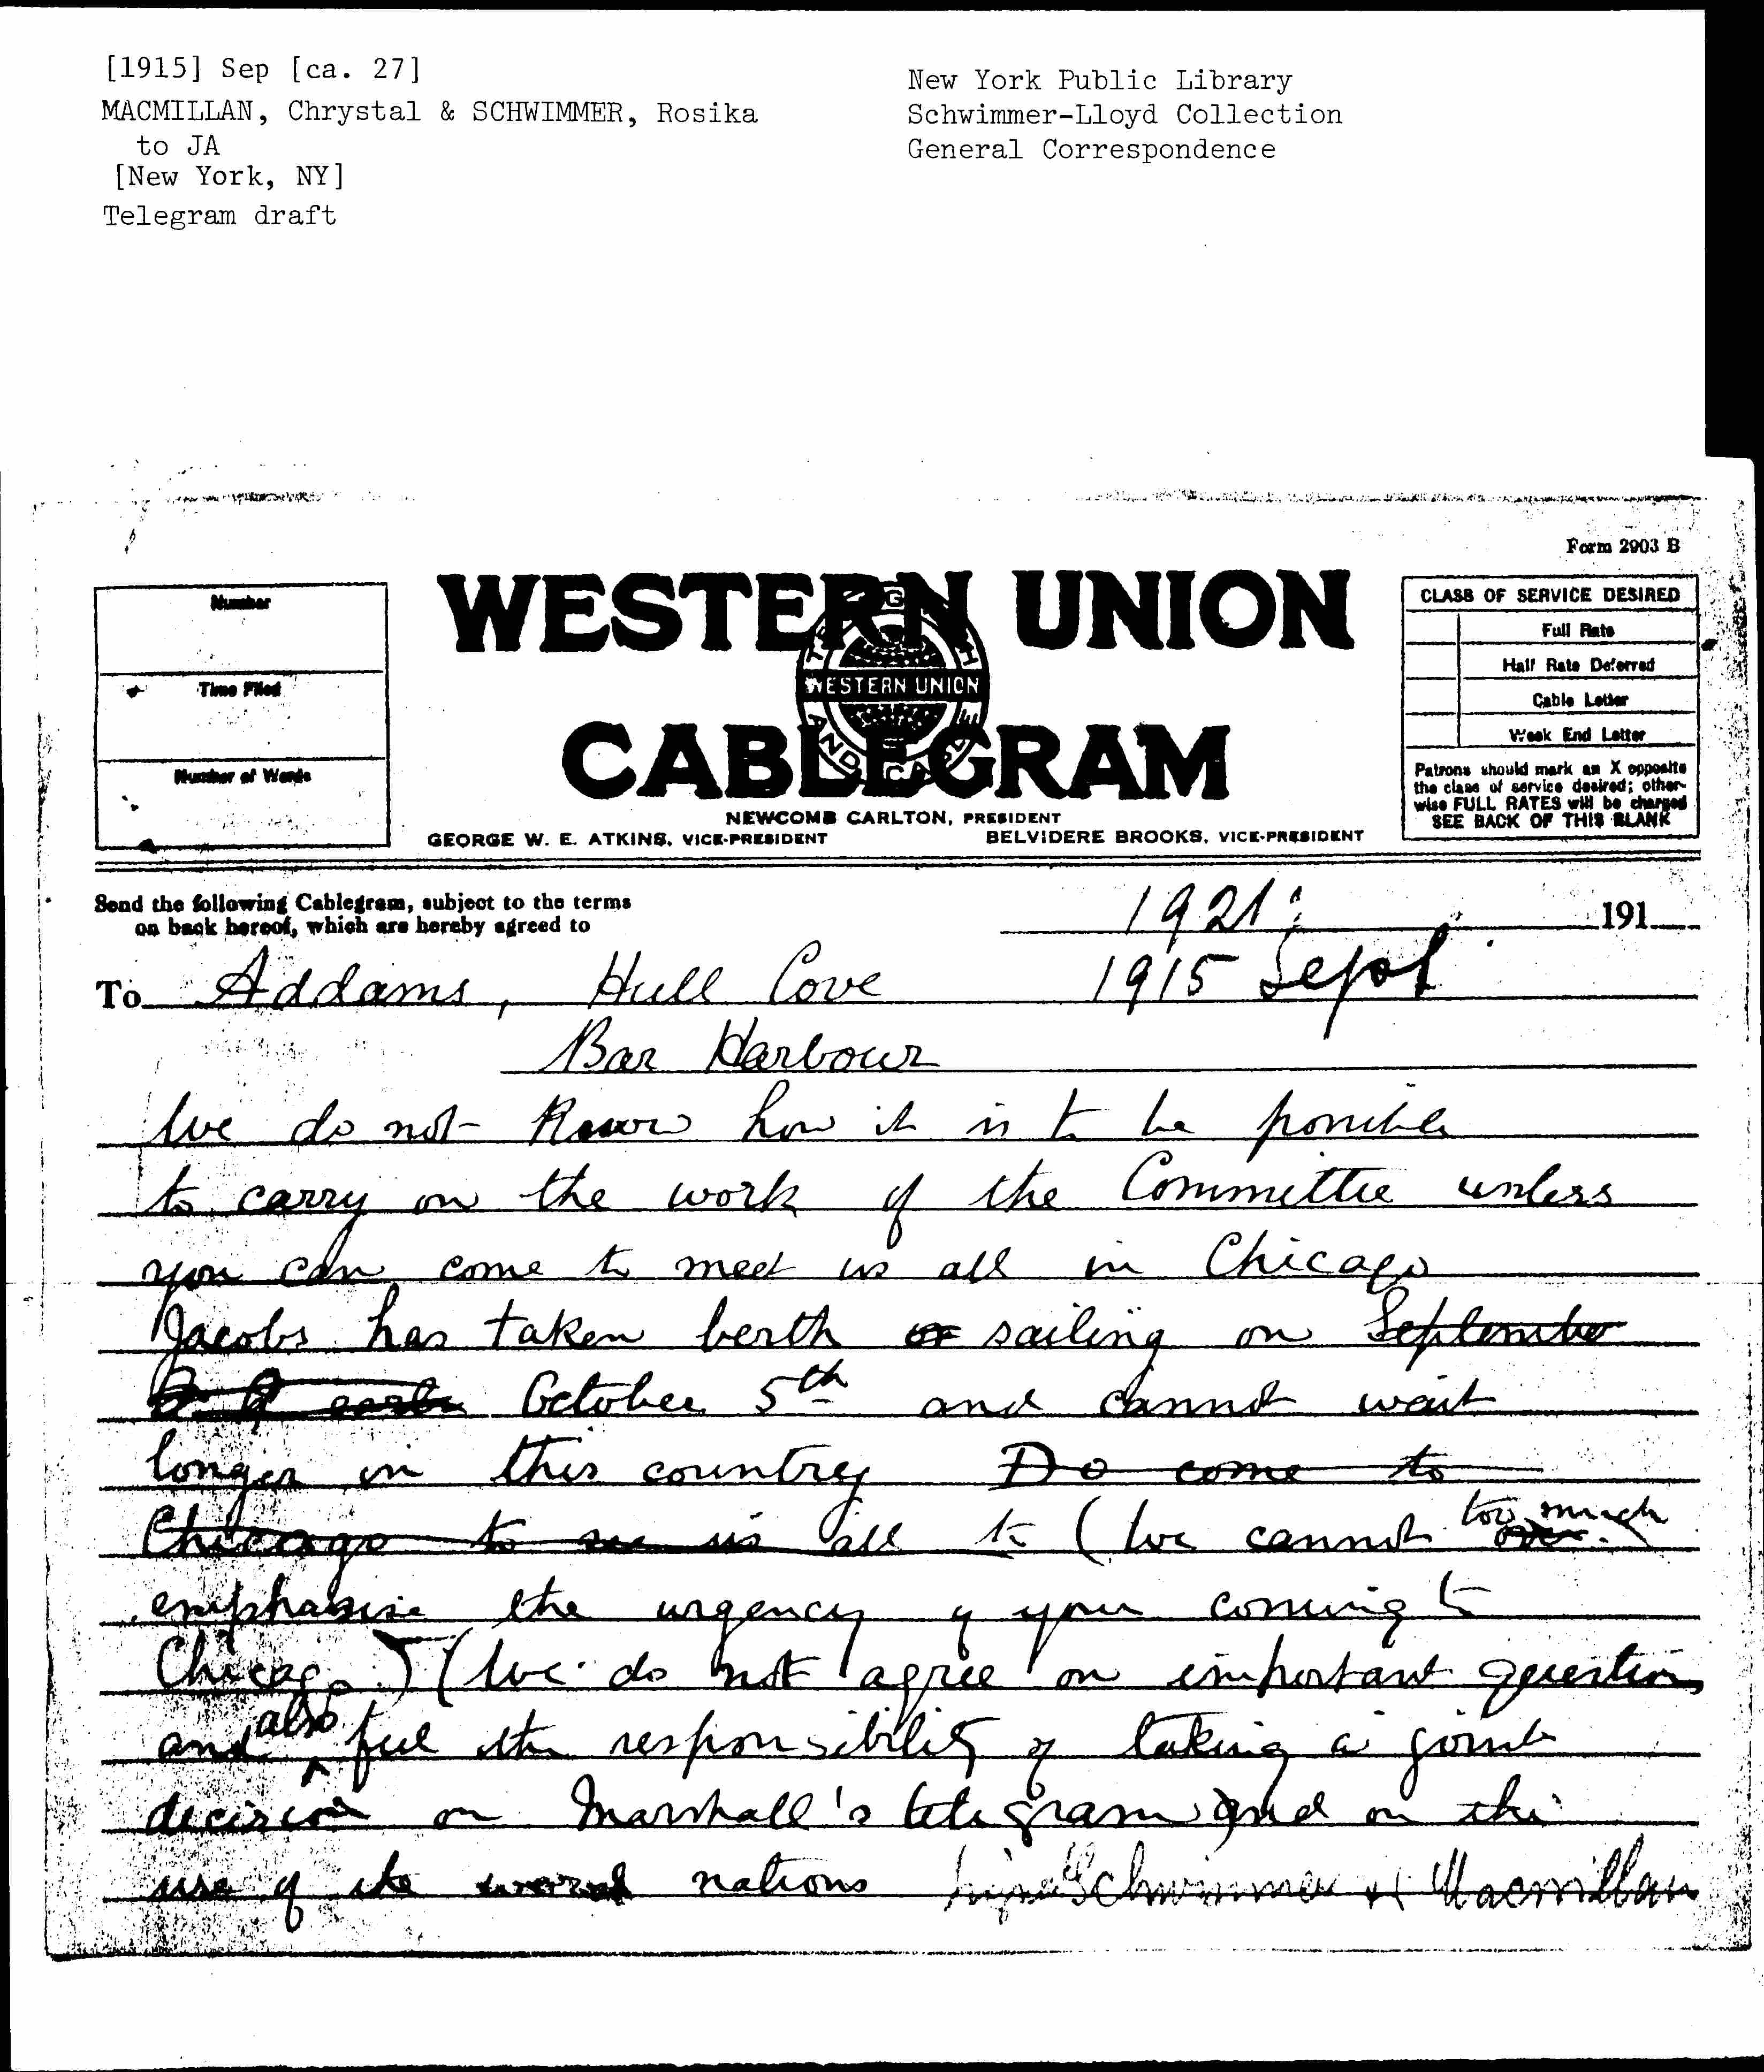 [1915] Sep [ca. 27]
MACMILLAN, Chrystal & SCHWIMMER, Rosika
to JA
[New York, NY]
Telegram draft
New York Public Library
Schwimmer-Lloyd Collection
General Correspondence
Form 2903 B
Number
Time Filed
Number of Words
WESTERN UNION
WESTERN UNION
CABLEGRAM
NEWCOMB CARLTON, PRESIDENT
GEORGE W. E. ATKINS, VICE-PRESIDENT BELVIDERE BROOKS, VICE-PRESIDENT
CLASS OF SERVICE DESIRED
Full Rate
Half Rate Deferred
Cable Letter
Week End Letter
Patrons should mark an X opposite
the class of service desired; other-
wise FULL RATES will be charged
SEE BACK OF THIS BLANK
Send the following Cablegram, subject to the terms
on back hereof, which are hereby agreed to
1921: 191
To Addams, Hull Cove 1915 Sept
Bar Harbour
We do not know how it is to be possible
to carry on the work of the Committee unless
you can come to meet us all in Chicago
Jacobs has taken berth or sailing on September
October 5th and cannot wait
longer in this country Do come to
Chicago to see us all to (We cannot too much
emphasise the urgency of your coming to
Chicago.) (We do not agree on important questions
and also feel the responsibility of taking a joint
decision on Marshall's telegram) and on the
use of the nations Schwimmer & Macmillan